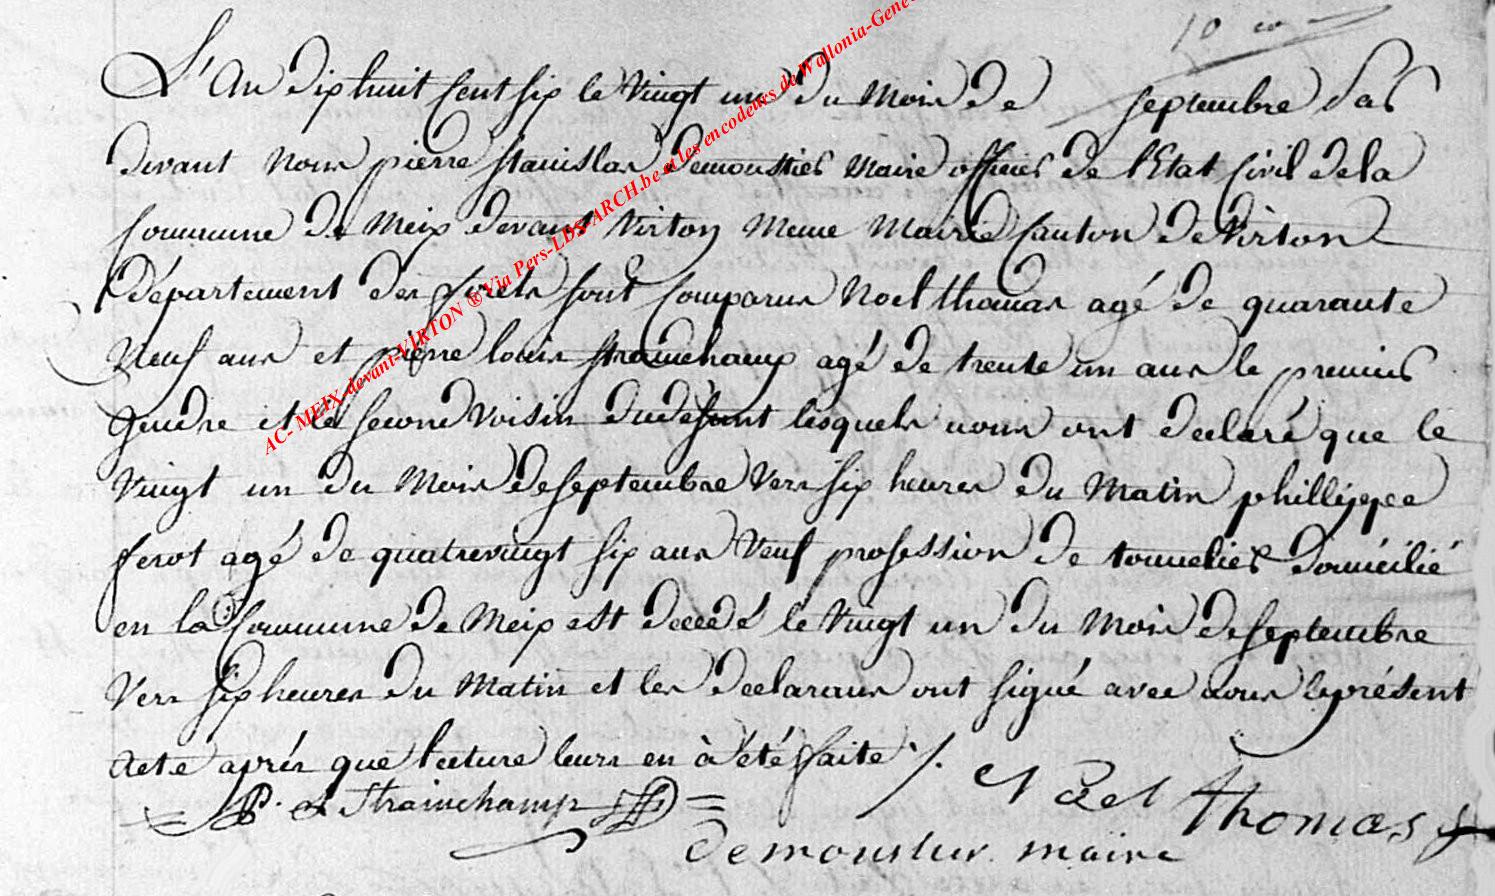 L'An dix huit Cent six le Vingt un du Mois de septembre Par
devant nous pierre stanislas Demoustier Maire officier de l'Etat Civil de la
Commune de Meix devant Virton Meme Mairie Canton de Virton
Département des forets sont Comparus Noel thomas agé de quarante
Neuf ans et pierre louis strainchamp agé de trente un ans le premier
Gendre et le second Voisin du defunt lesquels nous ont declaré que le
Vingt un du Mois de septembre Vers six heures du Matin phillippe
ferot agé de quatrevingt six ans Veuf profession de tonnelier domicilié
en la Commune de Meix est decedé le Vingt un du Mois de septembre
Vers six heures du Matin et les declarans ont signé avec nous le présent
Acte aprés que lecture leurs en à été faite ./.
P. L Strainchamp
Noel thomas
Demoustier maire
AC- MEIX-devant-VIRTON ® Via Pers-LDS-ARCH.be et les encodeurs de Wallonia-Gene